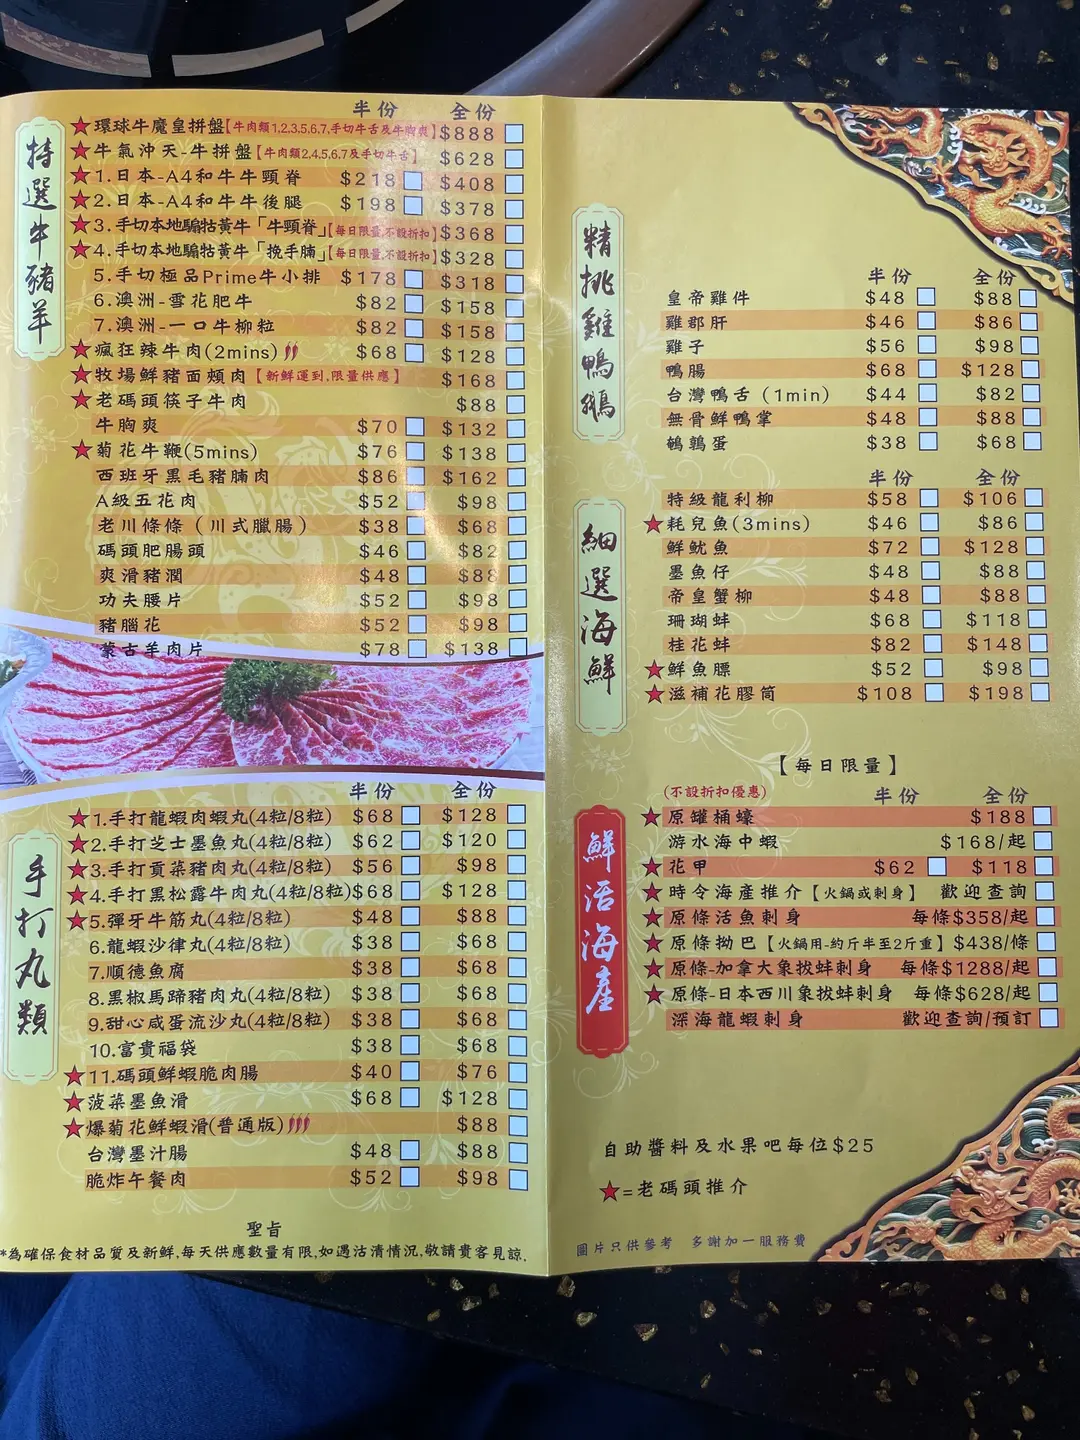 特選牛豬羊
半份 全份
★環球牛魔皇拼盤【牛肉類1,2,3,5,6,7,手切牛舌及牛胸爽】$888
★牛氣沖天-牛拼盤【牛肉類2,4,5,6,7及手切牛舌】 $628
★1.日本-A4和牛牛頸脊 $218 $408
★2.日本-A4和牛牛後腿 $198 $378
★3.手切本地騸牯黃牛「牛頸脊」【每日限量,不設折扣】$368
★4.手切本地騸牯黃牛「挽手腩」【每日限量,不設折扣】$328
5.手切極品Prime牛小排 $178 $318
6.澳洲-雪花肥牛 $82 $158
7.澳洲-一口牛柳粒 $82 $158
★瘋狂辣牛肉(2mins) $68 $128
★牧場鮮豬面頰肉【新鮮運到,限量供應】 $168
★老碼頭筷子牛肉 $88
牛胸爽 $70 $132
★菊花牛鞭(5mins) $76 $138
西班牙黑毛豬腩肉 $86 $162
A級五花肉 $52 $98
老川條條（川式臘腸） $38 $68
碼頭肥腸頭 $46 $82
爽滑豬潤 $48 $88
功夫腰片 $52 $98
豬腦花 $52 $98
蒙古羊肉片 $78 $138
手打丸類
半份 全份
★1.手打龍蝦肉蝦丸(4粒/8粒) $68 $128
★2.手打芝士墨魚丸(4粒/8粒) $62 $120
★3.手打貢菜豬肉丸(4粒/8粒) $56 $98
★4.手打黑松露牛肉丸(4粒/8粒)$68 $128
★5.彈牙牛筋丸(4粒/8粒) $48 $88
6.龍蝦沙律丸(4粒/8粒) $38 $68
7.順德魚腐 $38 $68
8.黑椒馬蹄豬肉丸(4粒/8粒) $38 $68
9.甜心咸蛋流沙丸(4粒/8粒) $38 $68
10.富貴福袋 $38 $68
★11.碼頭鮮蝦脆肉腸 $40 $76
★菠菜墨魚滑 $68 $128
★爆菊花鮮蝦滑(普通版) $88
台灣墨汁腸 $48 $88
脆炸午餐肉 $52 $98
聖旨
*為確保食材品質及新鮮,每天供應數量有限,如遇沽清情況,敬請貴客見諒.
精挑雞鴨鵝
半份 全份
皇帝雞件 $48 $88
雞郡肝 $46 $86
雞子 $56 $98
鴨腸 $68 $128
台灣鴨舌（1min） $44 $82
無骨鮮鴨掌 $48 $88
鵪鶉蛋 $38 $68
細選海鮮
半份 全份
特級龍利柳 $58 $106
★耗兒魚(3mins) $46 $86
鮮魷魚 $72 $128
墨魚仔 $48 $88
帝皇蟹柳 $48 $88
珊瑚蚌 $68 $118
桂花蚌 $82 $148
★鮮魚膘 $52 $98
★滋補花膠筒 $108 $198
【每日限量】
鮮活海產
(不設折扣優惠) 半份 全份
★原罐桶蠔 $188
游水海中蝦 $168/起
★花甲 $62 $118
★時令海產推介【火鍋或刺身】 歡迎查詢
★原條活魚刺身 每條$358/起
★原條拗巴【火鍋用-約斤半至2斤重】$438/條
★原條-加拿大象拔蚌刺身 每條$1288/起
★原條-日本西川象拔蚌刺身 每條$628/起
深海龍蝦刺身 歡迎查詢/預訂
自助醬料及水果吧每位$25
★=老碼頭推介
圖片只供參考 多謝加一服務費